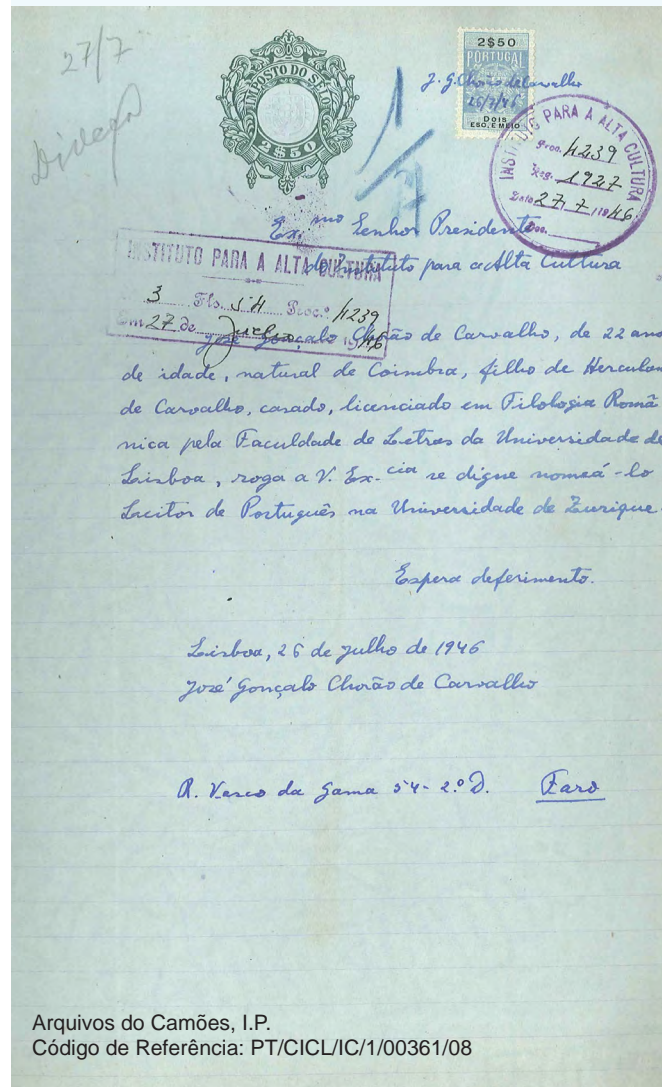 27/7
IMPOSTO DO SELO
2$50
2$50
PORTUGAL
DOIS
ESC. E MEIO
J. G. Chorão de Carvalho
26/7/46
1/7
INSTITUTO PARA A ALTA CULTURA
Proc. 4239
Reg. 1927
Data 27, 7, 1946
Doc.
Ex.mo Senhor Presidente
do Instituto para a Alta Cultura
INSTITUTO PARA A ALTA CULTURA
3 Fls. 54 Proc.º 4239
Em 27 de Julho 1946
José Gonçalo Chorão de Carvalho, de 22 anos
de idade, natural de Coimbra, filho de Herculano
de Carvalho, casado, licenciado em Filologia Româ
nica pela Faculdade de Letras da Universidade de
Lisboa, roga a V. Ex.cia se digne nomeá-lo
Leitor de Português na Universidade de Zurique.
Espera deferimento.
Lisboa, 26 de Julho de 1946
José Gonçalo Chorão de Carvalho
R. Vasco da Gama 54-2.º D. Faro
Arquivos do Camões, I.P.
Código de Referência: PT/CICL/IC/1/00361/08